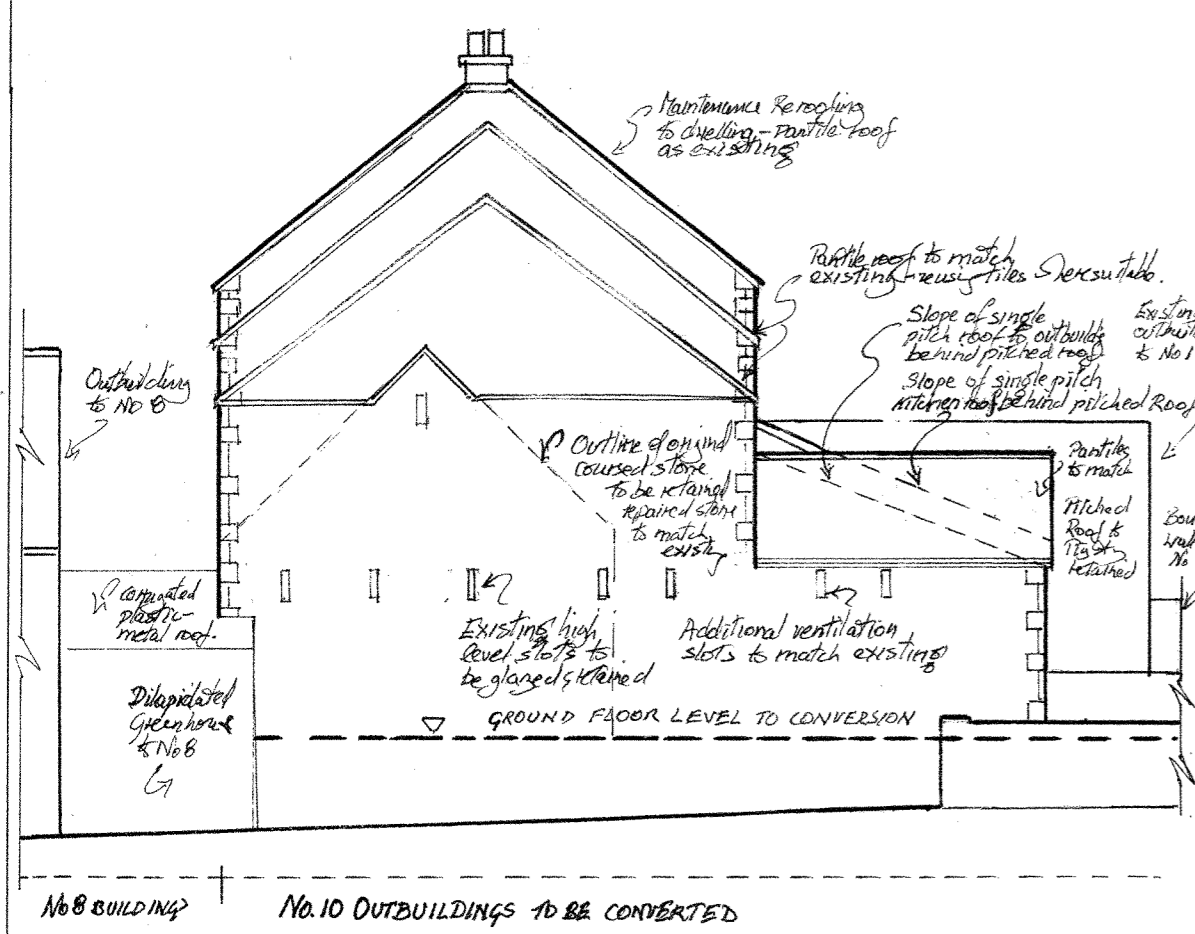 Maintenance Reroofing
to dwelling - Pantile roof
as existing
Pantile roof to match
existing - reusing tiles
Slope of single
pitch roof to outbuildg
behind pitched roof
Slope of single pitch
Kitchen roof behind pitched Roof
Existing
outbuil
to No 1
Outbuilding
to No 8
Outline of original
coursed stone
to be retained
repaired stone
to match
existg
Pantiles
to match
Pitched
Roof to
retained
Bou
wall
No
corrugated
plastic-
metal roof.
Existing high
level slots to
be glazed & retained
Additional ventilation
slots to match existing
Dilapidated
Greenhouse
to No 8
GROUND FLOOR LEVEL TO CONVERSION
No 8 BUILDING
No. 10 OUTBUILDINGS TO BE CONVERTED